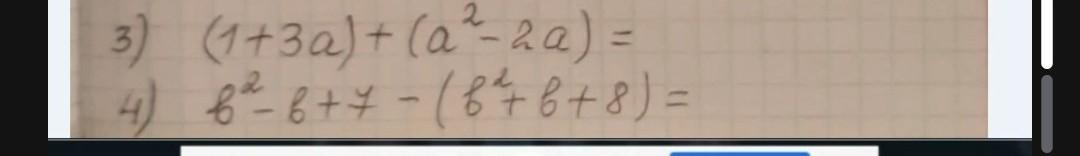 3) (1+3a)+(a²-2a)=
4) b²-b+7-(b²+b+8)=